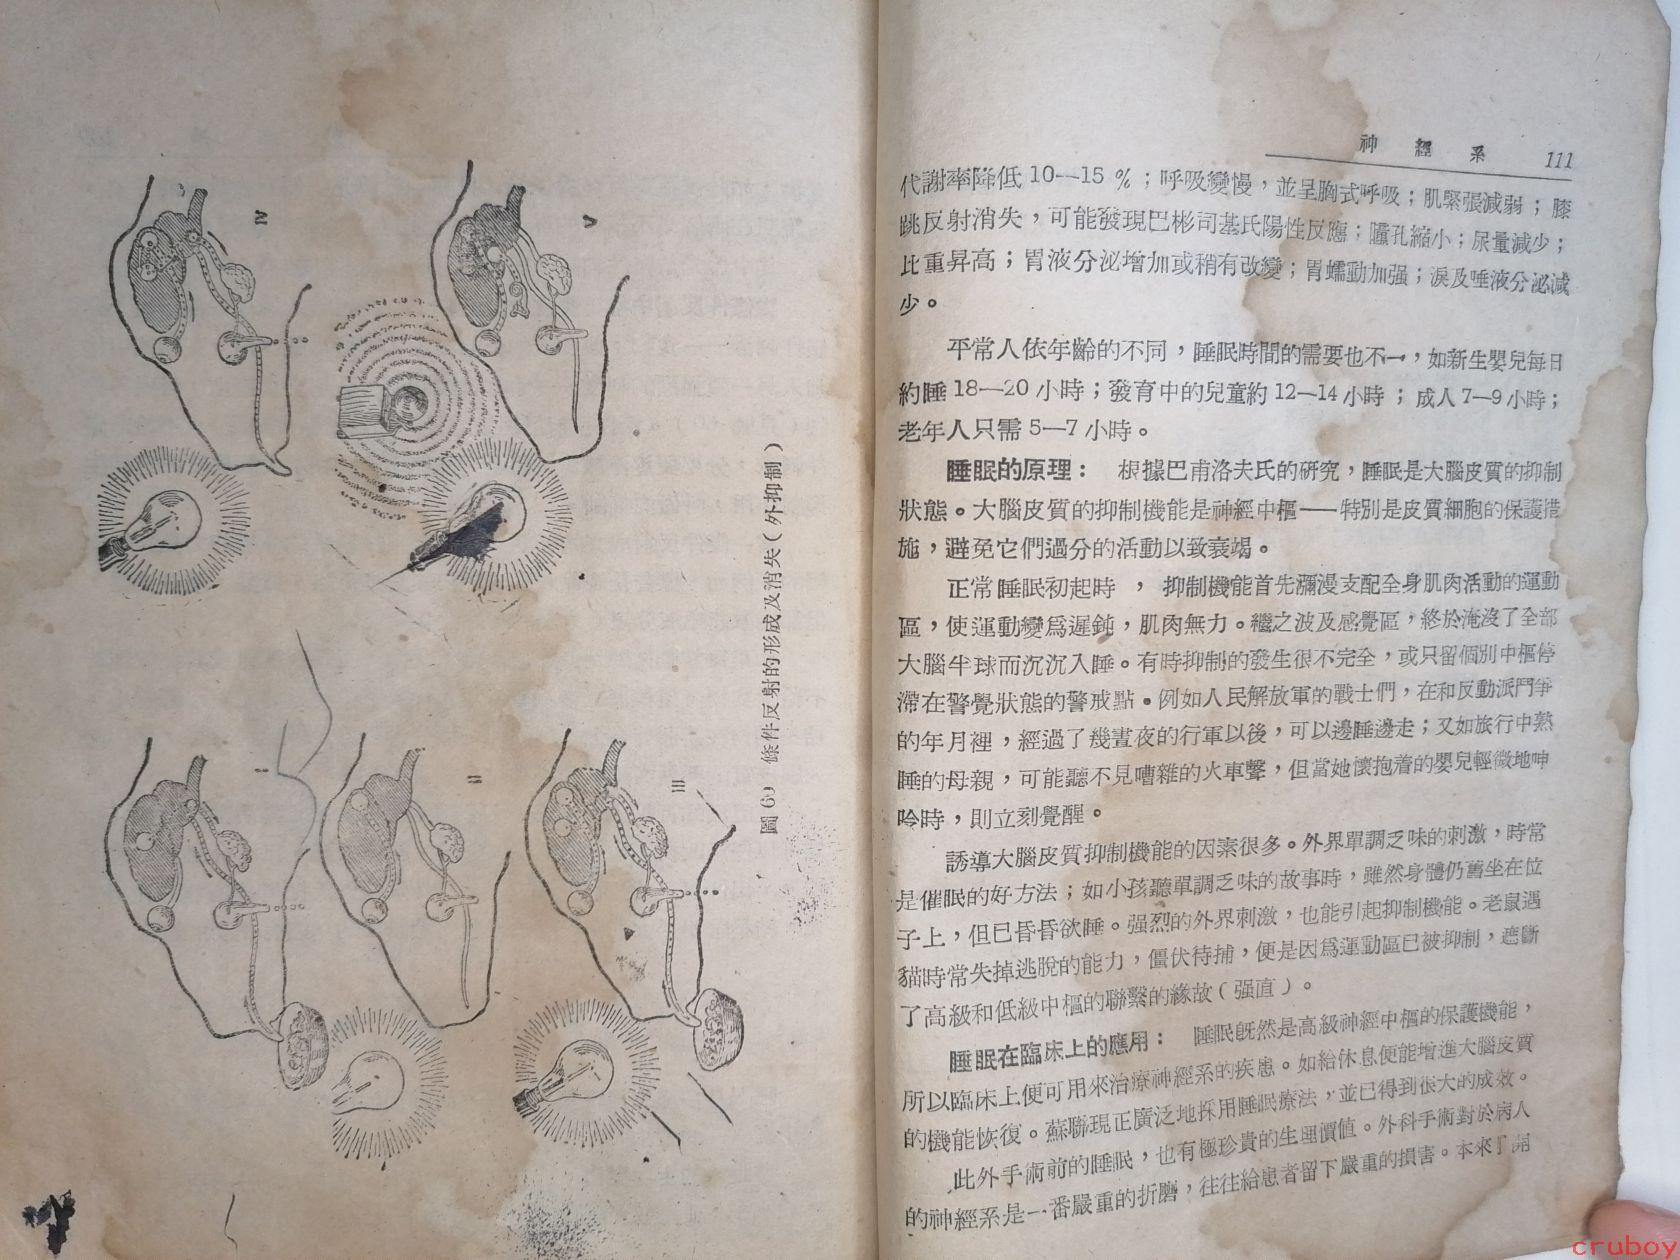 IV
V
I
II
III
條件反射的形成及消失(外抑制)
神經系 111
代謝率降低10—15%；呼吸變慢，並呈胸式呼吸；肌緊張減弱；膝
跳反射消失，可能發現巴彬司基氏陽性反應；瞳孔縮小；尿量減少；
比重昇高；胃液分泌增加或稍有改變；胃蠕動加强；淚及唾液分泌減
少。
平常人依年齡的不同，睡眠時間的需要也不一，如新生嬰兒每日
約睡18—20小時；發育中的兒童約12—14小時；成人7—9小時；
老年人只需5—7小時。
睡眠的原理： 根據巴甫洛夫氏的研究，睡眠是大腦皮質的抑制
狀態。大腦皮質的抑制機能是神經中樞——特別是皮質細胞的保護措
施，避免它們過分的活動以致衰竭。
正常睡眠初起時，抑制機能首先瀰漫支配全身肌肉活動的運動
區，使運動變爲遲鈍，肌肉無力。繼之波及感覺區，終於淹沒了全部
大腦半球而沉沉入睡。有時抑制的發生很不完全，或只留個別中樞停
滯在警覺狀態的警戒點。例如人民解放軍的戰士們，在和反動派鬥爭
的年月裡，經過了幾晝夜的行軍以後，可以邊睡邊走；又如旅行中熟
睡的母親，可能聽不見嘈雜的火車聲，但當她懷抱着的嬰兒輕微地呻
吟時，則立刻覺醒。
誘導大腦皮質抑制機能的因素很多。外界單調乏味的刺激，時常
是催眠的好方法；如小孩聽單調乏味的故事時，雖然身體仍舊坐在位
子上，但已昏昏欲睡。强烈的外界刺激，也能引起抑制機能。老鼠遇
貓時常失掉逃脫的能力，僵伏待捕，便是因爲運動區已被抑制，遮斷
了高級和低級中樞的聯繫的緣故(强直)。
睡眠在臨床上的應用： 睡眠旣然是高級神經中樞的保護機能，
所以臨床上便可用來治療神經系的疾患。如給休息便能增進大腦皮質
的機能恢復。蘇聯現正廣泛地採用睡眠療法，並已得到很大的成效。
此外手術前的睡眠，也有極珍貴的生理價值。外科手術對於病人
的神經系是一番嚴重的折磨，往往給患者留下嚴重的損害。本來了
cruboy